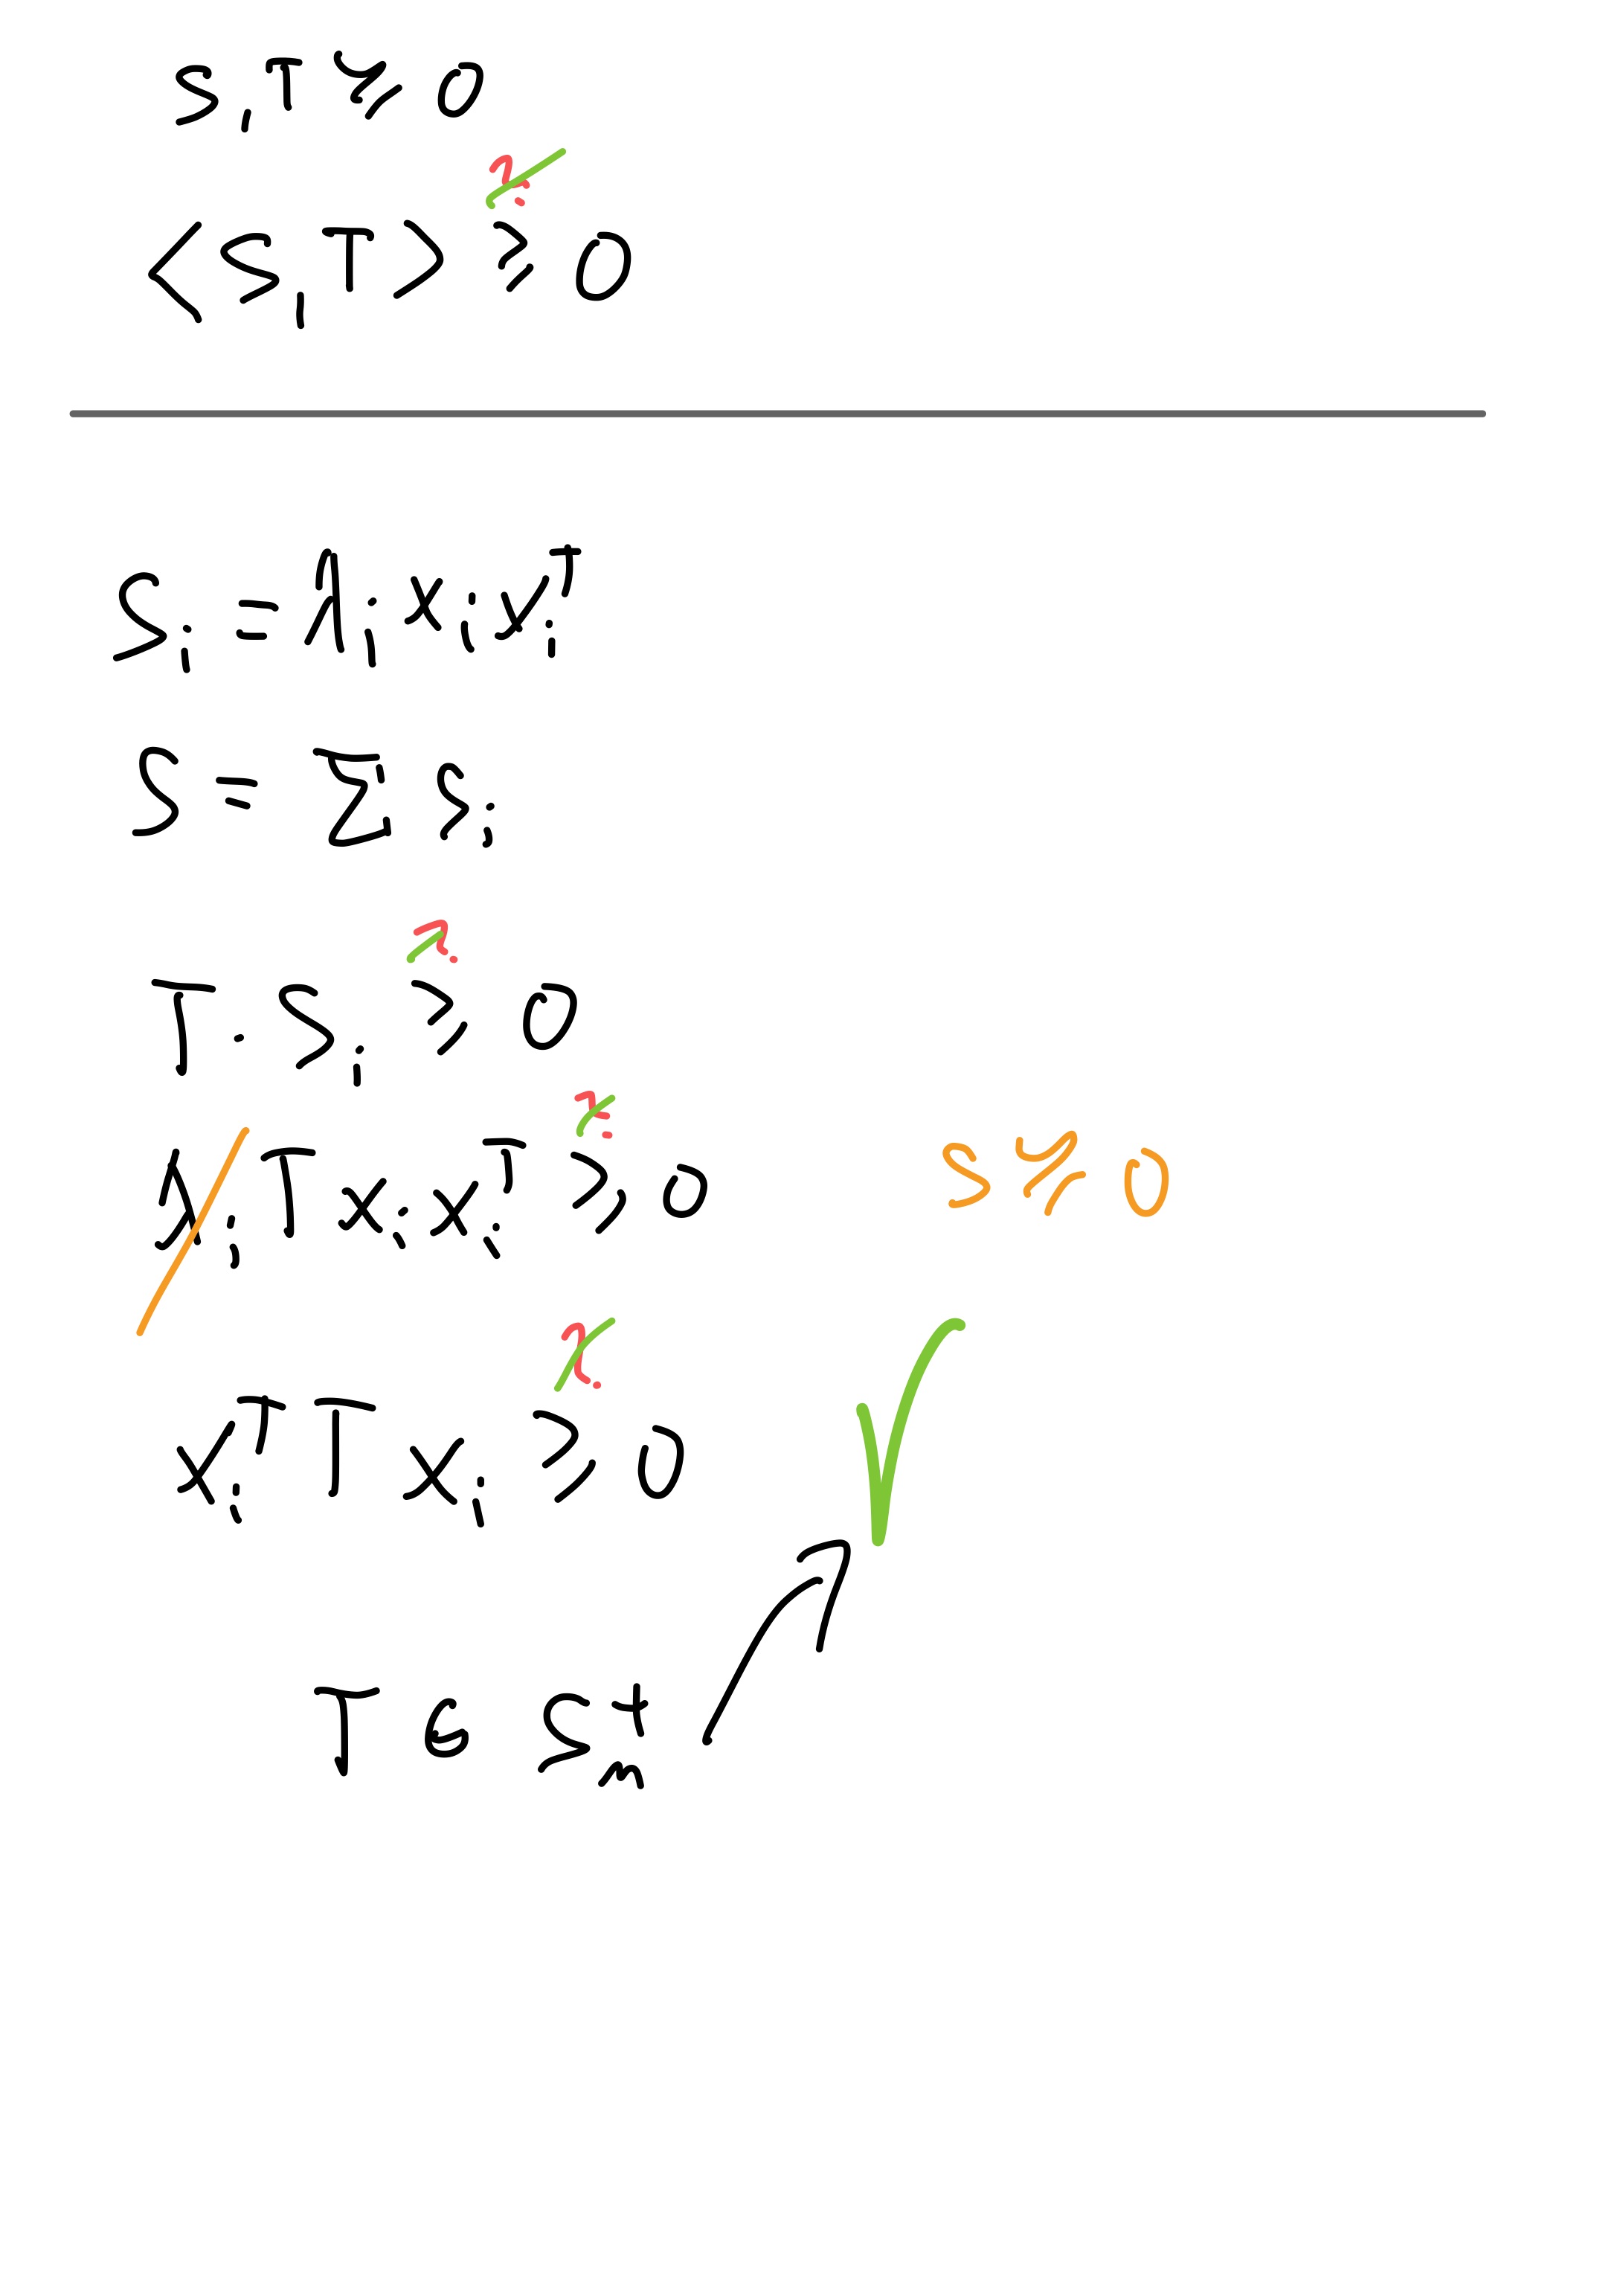 S, T ≽ 0
?
<S, T> ≥ 0
S_i = λ_i x_i x_i^T
S = Σ S_i
?
T · S_i ≥ 0
?
λ_i T x_i x_i^T ≥ 0 S ≽ 0
?
x_i^T T x_i ≥ 0 ✓
T ∈ S_n^+